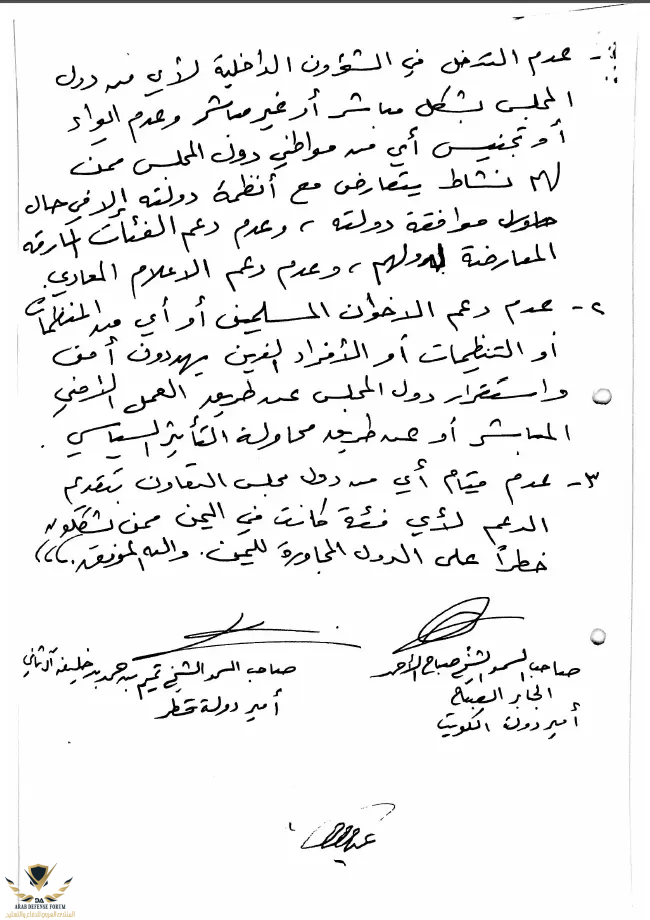 ١- عدم التدخل في الشؤون الداخلية لأي من دول
المجلس بشكل مباشر أو غير مباشر وعدم إيواء
أو تجنيس أي من مواطني دول المجلس ممن
لهم نشاط يتعارض مع أنظمة دولته إلا في حال
موافقة دولته ، وعدم دعم الفئات المارقه
المعارضة لدولهم ، وعدم دعم الاعلام المعادي .
٢- عدم دعم الاخوان المسلمين أو أي من المنظمات
أو التنظيمات أو الأفراد الذين يهددون أمن
واستقرار دول المجلس عن طريق العمل الأمني
المباشر أو عن طريق محاولة التأثير السياسي .
٣- عدم قيام أي من دول مجلس التعاون بتقديم
الدعم لأي فئة كانت في اليمن ممن يشكلون
خطراً على الدول المجاورة لليمن . والله الموفق ،،،
صاحب السمو الشيخ صباح الأحمد
الجابر الصباح
أمير دولة الكويت
صاحب السمو الشيخ تميم بن حمد بن خليفه آل ثاني
أمير دولة قطر
DA
ARAB DEFENSE FORUM
المنتدى العربي للدفاع والتسليح